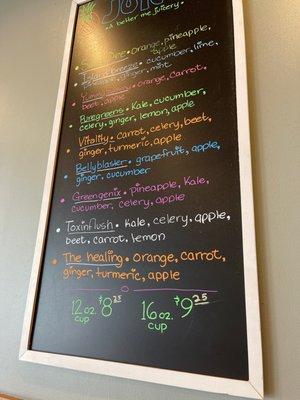 A better me juicery
Dee • Orange, pineapple,
apple
Island Breeze • cucumber, lime,
ginger, mint
Orange, Carrot,
beet, apple
Puregreens • Kale, cucumber,
celery, ginger, lemon, apple
Vitality • carrot, celery, beet,
ginger, turmeric, apple
Bellyblaster • grapefruit, apple,
ginger, cucumber
Greengenix • pineapple, Kale,
cucumber, celery, apple
Toxinflush • Kale, celery, apple,
beet, carrot, lemon
The healing • orange, carrot,
ginger, turmeric, apple
12 oz. $8.25 16 oz. $9.25
cup cup